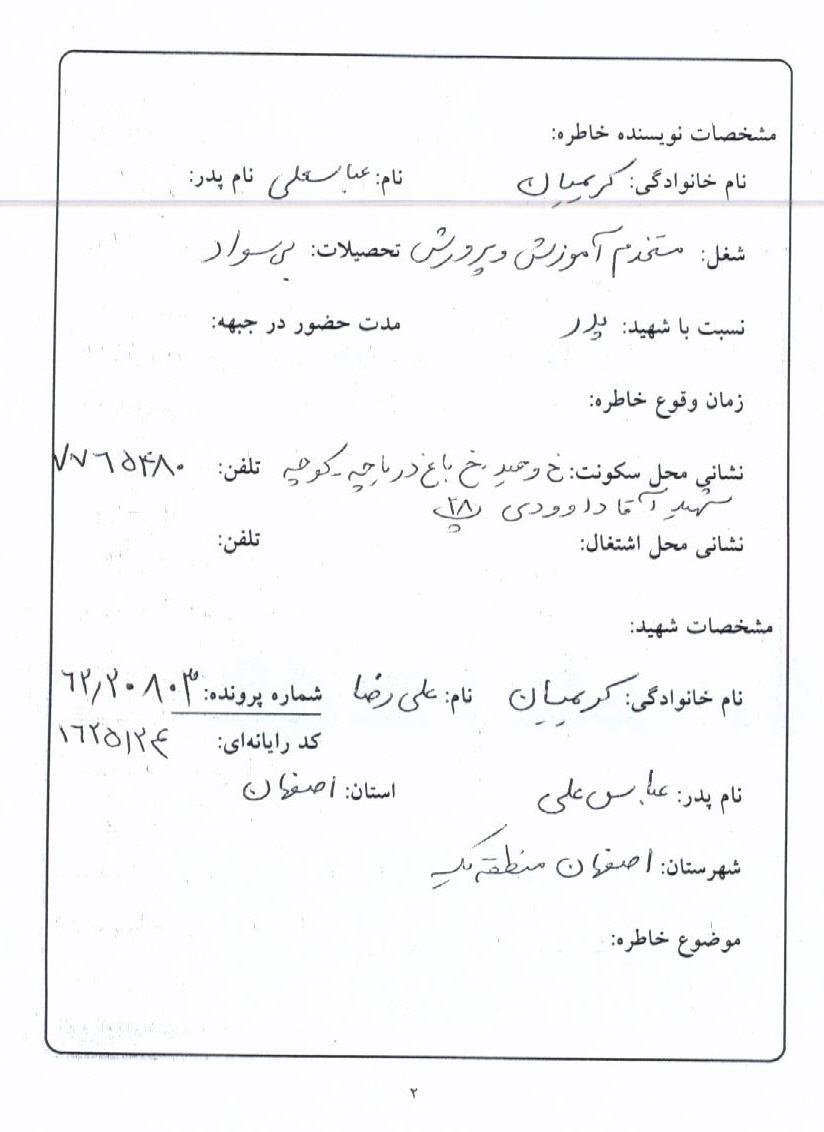 مشخصات نویسنده خاطره:
نام خانوادگی: کریمیان نام: عباسعلی نام پدر:
شغل: مستخدم آموزش و پرورش تحصیلات: بی سواد
نسبت با شهید: پدر مدت حضور در جبهه:
زمان وقوع خاطره:
نشانی محل سکونت: خ وحید خ باغ دریاچه - کوچه تلفن: ۷۷۶۵۴۸۰
شهید آقا داوودی پ ۲۸
نشانی محل اشتغال: تلفن:
مشخصات شهید:
نام خانوادگی: کریمیان نام: علی رضا شماره پرونده: ۶۲/۲۰۸۰۳
کد رایانه‌ای: ۱۶۲۵۱۲۴
نام پدر: عباس علی استان: اصفهان
شهرستان: اصفهان منطقه یک
موضوع خاطره:
۲